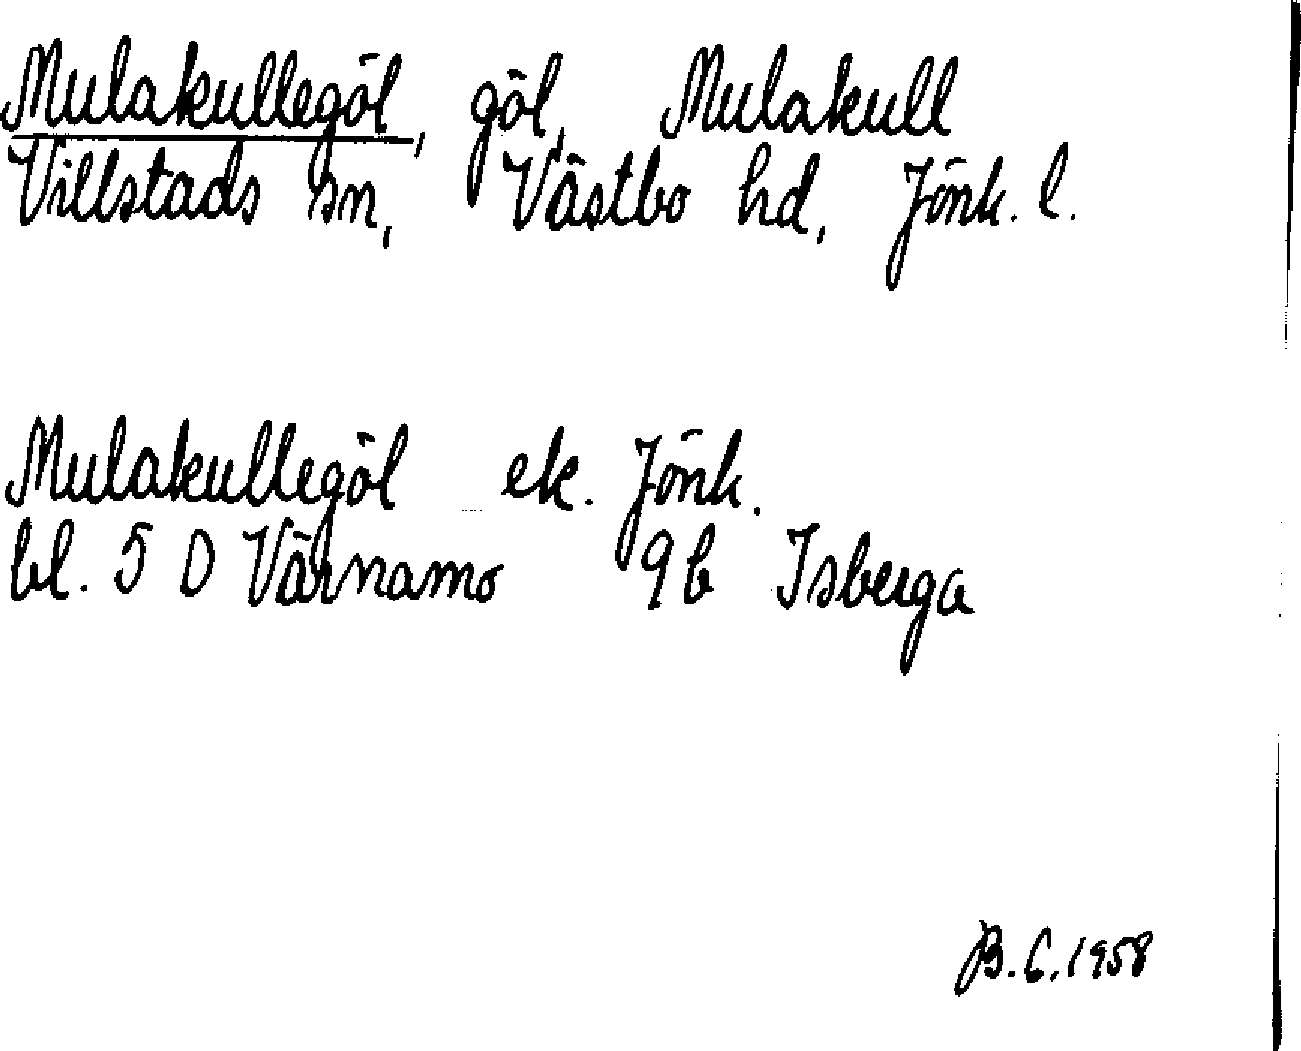 Mulakullegöl, göl, Mulakull
Villstads sn, Västbo hd, Jönk. l.
Mulakullegöl ek. Jönk.
bl. 5 D Värnamo 9b Isberga
B.C. 1958